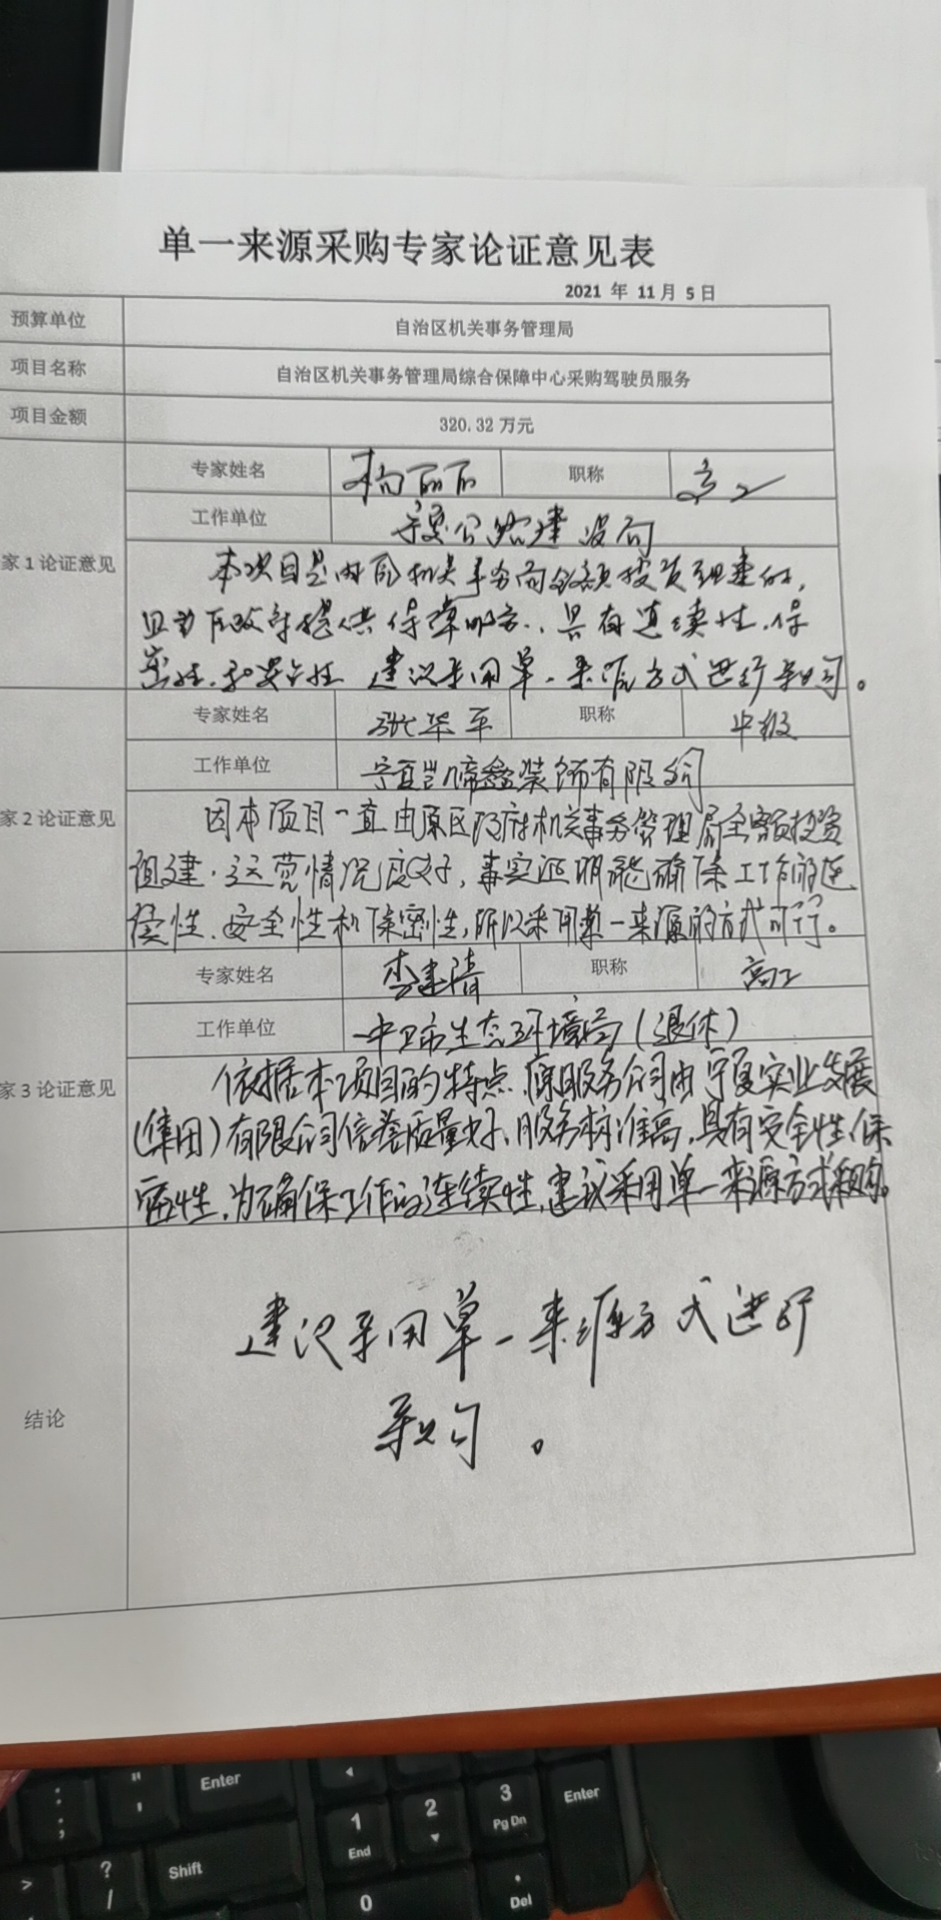 单一来源采购专家论证意见表
2021 年 11 月 5 日
预算单位 自治区机关事务管理局
项目名称 自治区机关事务管理局综合保障中心采购驾驶员服务
项目金额 320.32 万元
专家姓名 杨丽丽 职称 高工
工作单位 宁夏公路建设局
家 1 论证意见
本项目是由区机关事务局全额投资组建的,
且为区政府提供保障服务、具有连续性、保
密性、和安全性 建议采用单一来源方式进行采购。
专家姓名 张华平 职称 中级
工作单位 宁夏凯啼鑫装饰有限公司
家 2 论证意见
因本项目一直由原区政府机关事务管理局全额投资
组建.运营情况良好,事实证明能确保工作的连
续性、安全性和保密性,所以采用单一来源的方式可行。
专家姓名 李建清 职称 高工
工作单位 中卫市生态环境局(退休)
家 3 论证意见
依据本项目的特点.原服务公司由宁夏实业发展
(集团)有限公司信誉质量好、服务标准高,具有安全性、保
密性,为确保工作的连续性,建议采用单一来源方式采购。
结论
建议采用单一来源方式进行
采购。
Enter
1
End
2
3
Pg Dn
Enter
?
/
Shift
0
.
Del